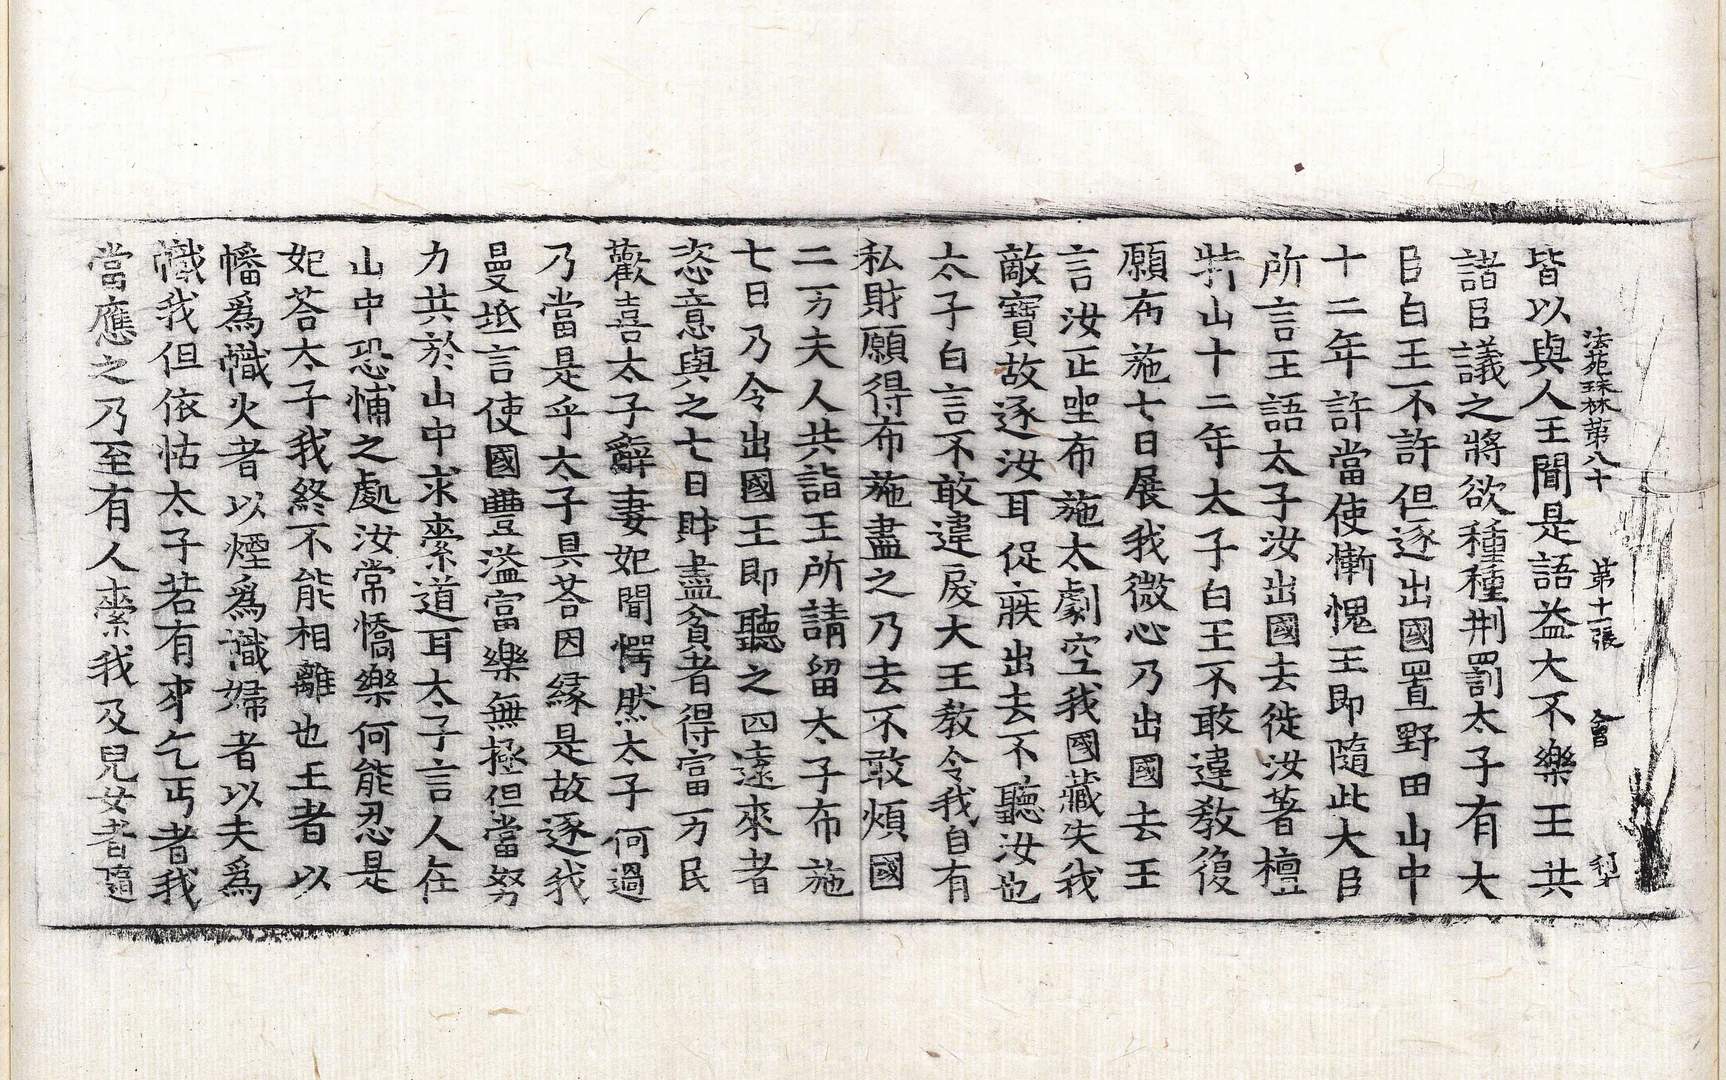 法苑珠林第八十 第十一張 會 刂
皆以與人王聞是語益大不樂王共
諸臣議之將欲種種荆罰太子有大
臣白王不許但逐出國置野田山中
十二年許當使慚愧王即隨此大臣
所言王語太子汝出國去徙汝著檀
特山十二年太子白王不敢違教復
願布施七日展我微心乃出國去王
言汝正坐布施太劇空我國藏失我
敵寶故逐汝耳促疾出去不聽汝也
太子白言不敢違戾大王教令我自有
私財願得布施盡之乃去不敢煩國
二万夫人共詣王所請留太子布施
七日乃令出國王即聽之四遠來者
恣意與之七日財盡貧者得富万民
歡喜太子辭妻妃聞愕然太子何過
乃當是乎太子具荅因緣是故逐我
曼坻言使國豐溢富樂無極但當努
力共於山中求索道耳太子言人在
山中恐怖之處汝常憍樂何能忍是
妃荅太子我終不能相離也王者以
幡爲幟火者以煙爲識婦者以夫爲
幟我但依怙太子若有來乞丐者我
當應之乃至有人索我及兒女者隨